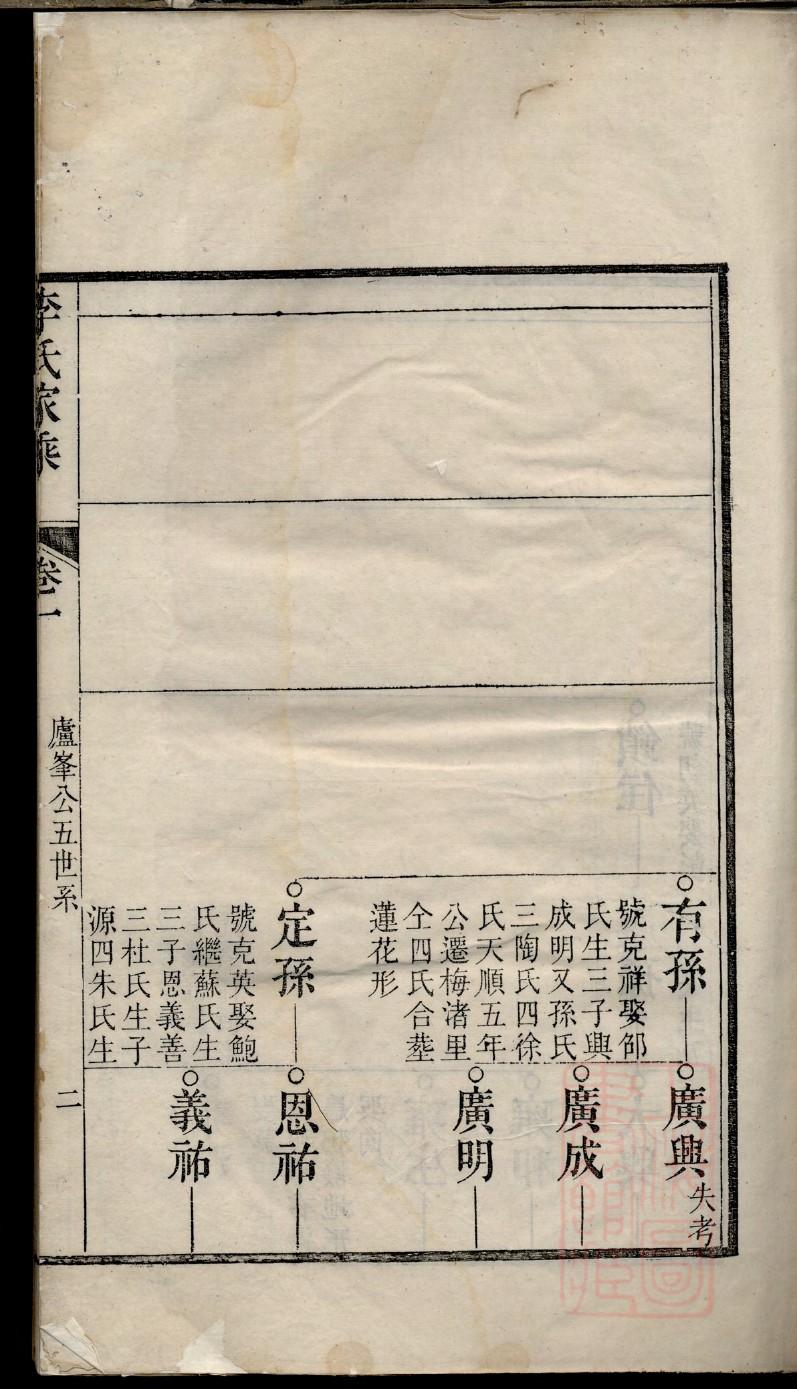 有孫
號克祥娶邰
氏生三子興
成明又孫氏
三陶氏四徐
氏天順五年
公遷梅渚里
仝四氏合塟
蓮花形
廣興
失考
廣成
廣明
定孫
號克英娶鮑
氏繼蘇氏生
三子恩義善
三杜氏生子
源四朱氏生
恩祐
義祐
李氏家乘
卷一
廬峯公五世系
二